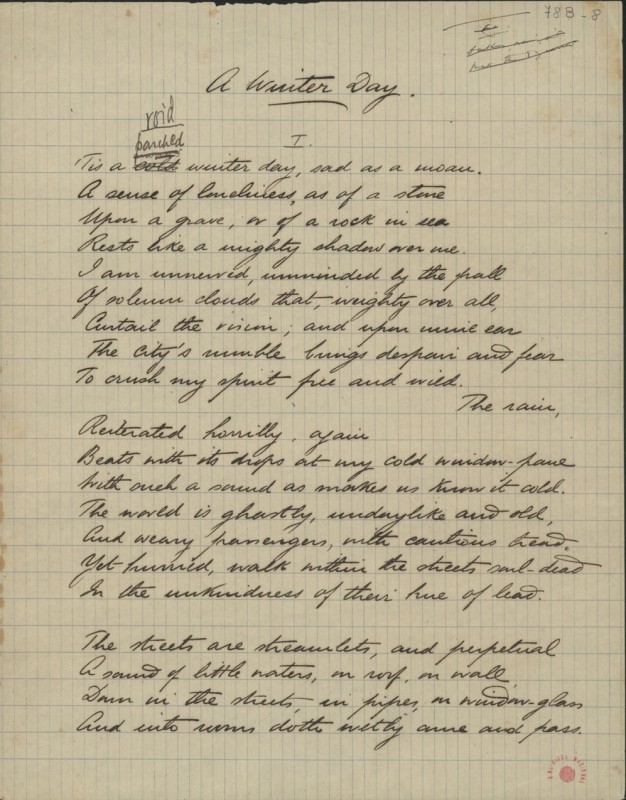 78B-8
A Winter Day.
I.
void
parched
'Tis a cold winter day, sad as a moan.
A sense of loneliness, as of a stone
Upon a grave, or of a rock in sea
Rests like a mighty shadow over me.
I am unnerved, unminded by the pall
Of solemn clouds that, weighty over all,
Curtail the vision; and upon mine ear
The city's rumble brings despair and fear
To crush my spirit free and wild.
The rain,
Reiterated horridly, again
Beats with its drops at my cold window-pane
With such a sound as makes us know it cold.
The world is ghastly, undaylike and old,
And weary passengers, with cautious tread,
Yet hurried, walk within the streets soul-dead
In the unkindness of their hue of lead.
The streets are streamlets, and perpetual
A sound of little waters, on roof, on wall,
Down in the streets, in pipes, on window-glass
And into rooms doth wetly come and pass.